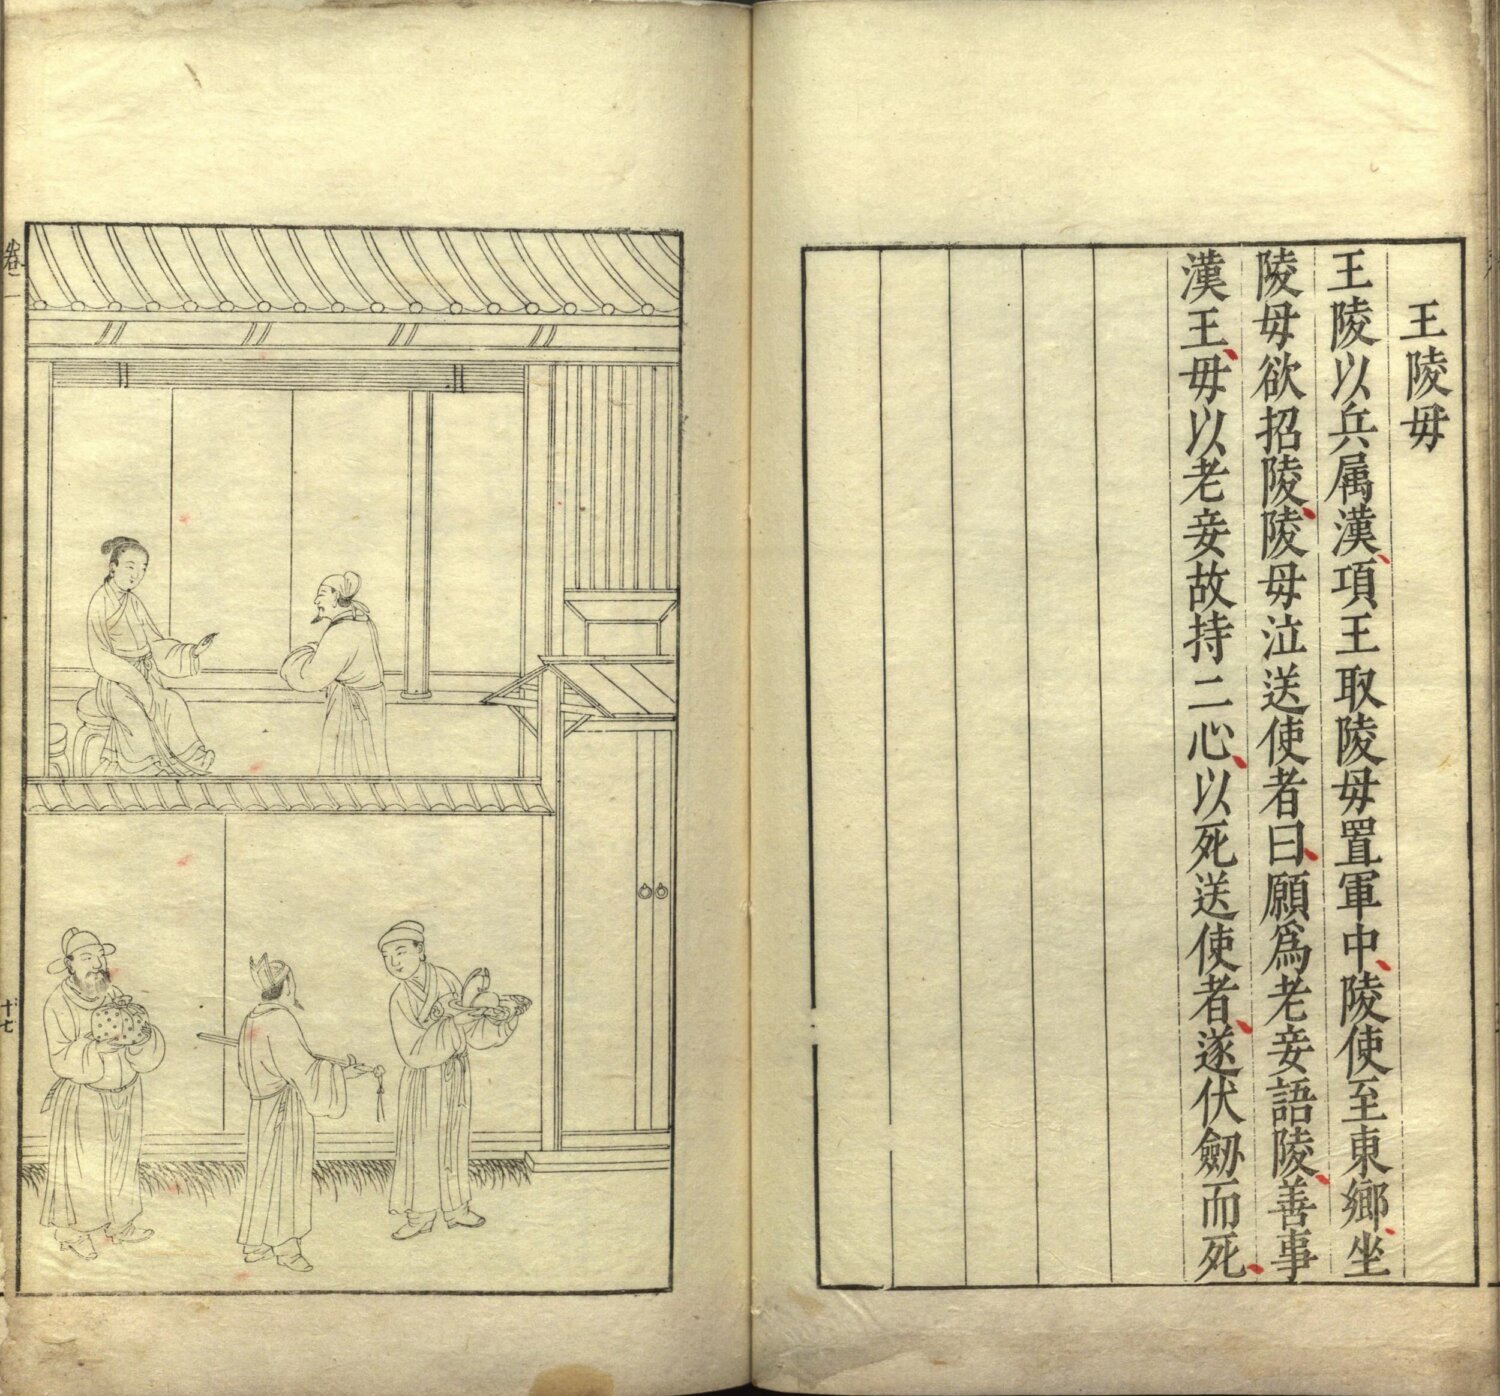 王陵母
王陵以兵属漢項王取陵母置軍中陵使至東鄉坐
陵母欲招陵陵母泣送使者曰願爲老妾語陵善事
漢王毋以老妾故持二心以死送使者遂伏劒而死
卷二
十七